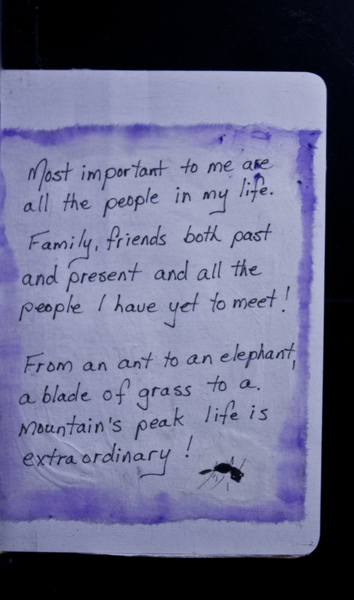 Most important to me are
all the people in my life.
Family, friends both past
and present and all the
people I have yet to meet!
From an ant to an elephant,
a blade of grass to a.
Mountain's peak life is
extraordinary!